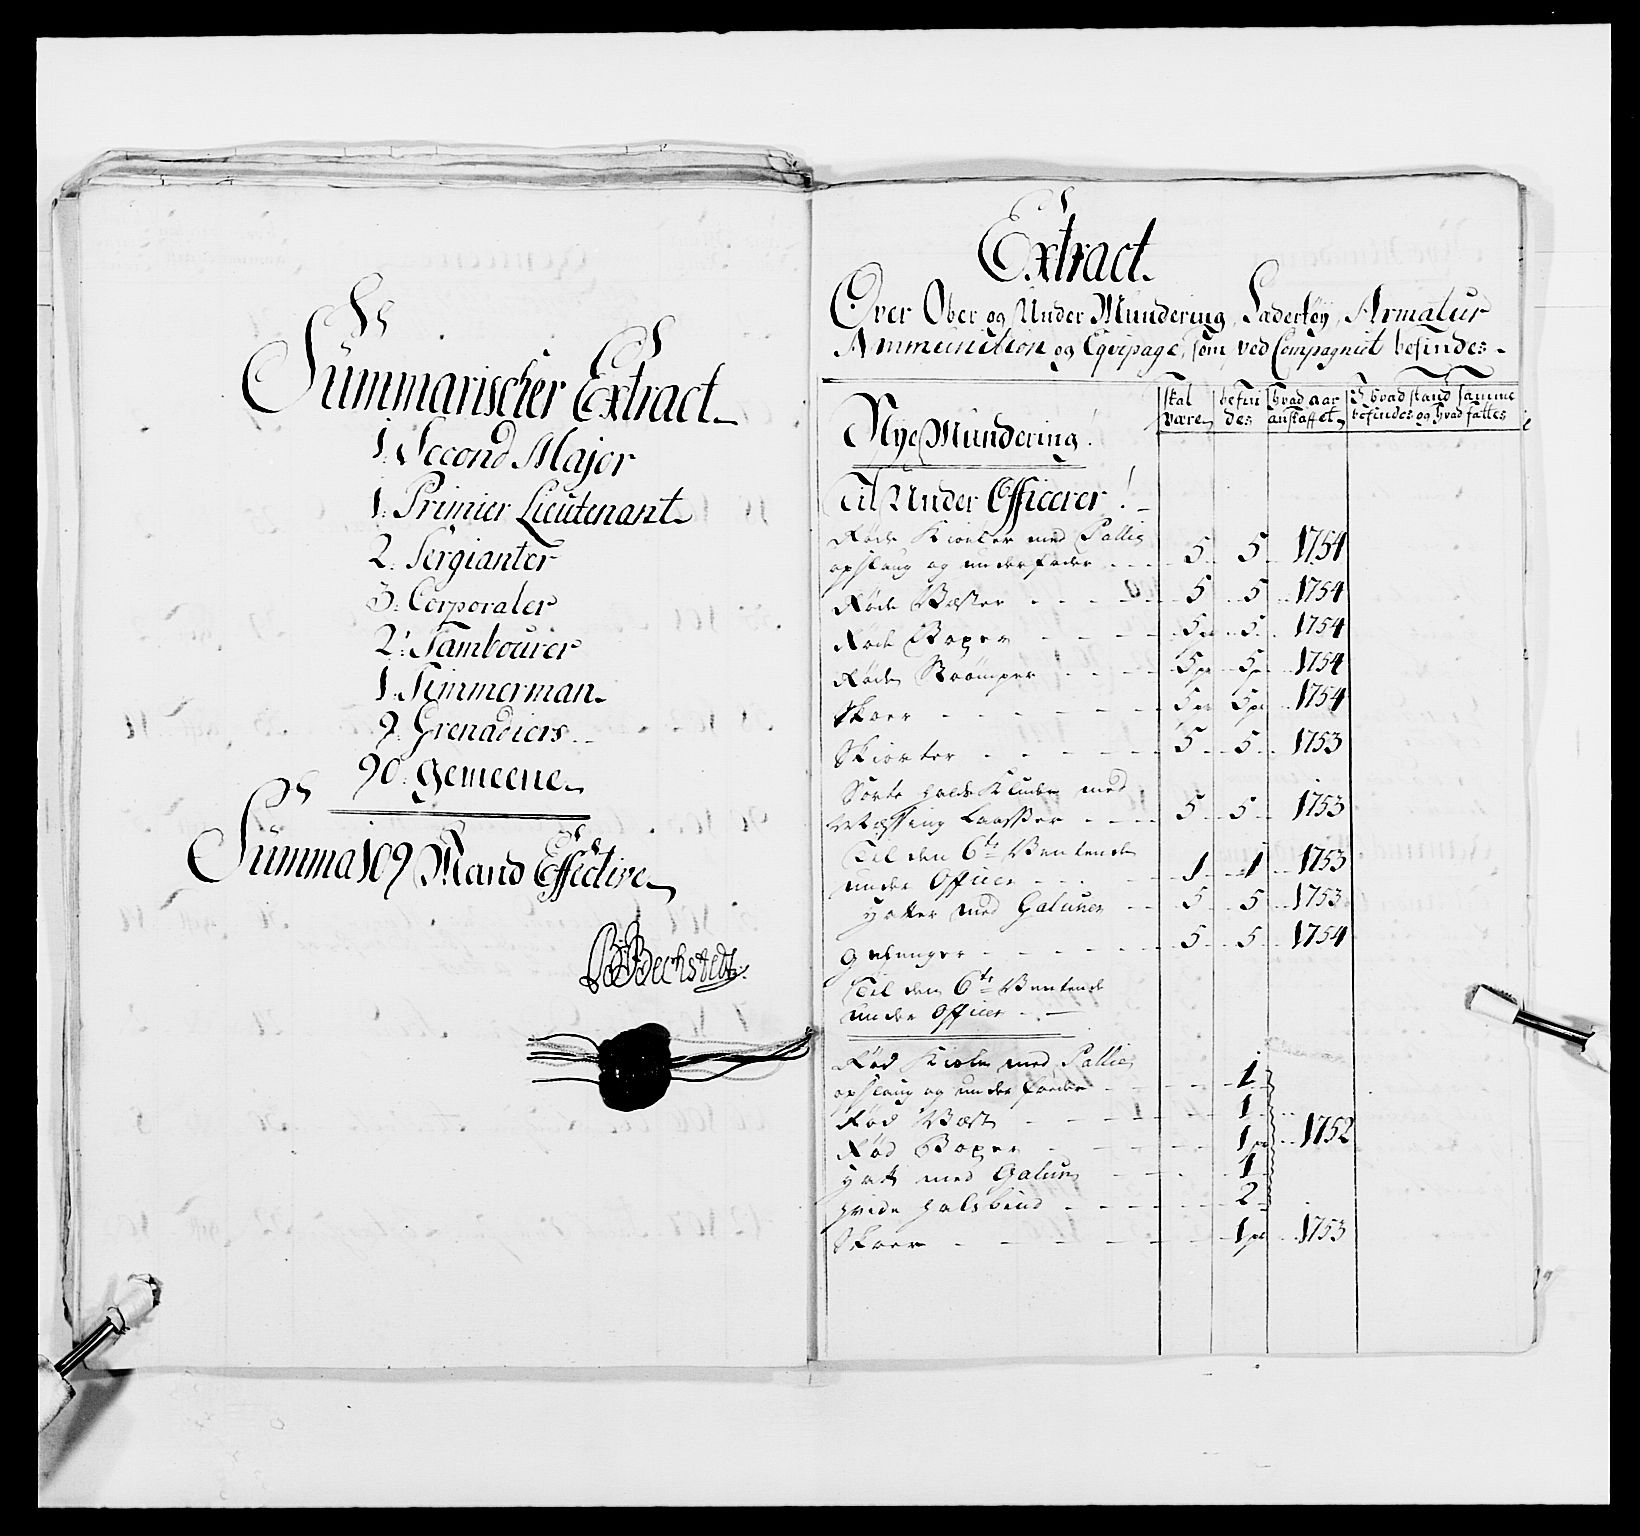 Summarischer Extract
1. Second Major
1. Primier Lieutenant
2. Sergianter
3. Corporaler
2. Tambourer
1. Timmerman
9. Grenadiers
90. gemeene
Summa 109 Mand Effective
Bechstedt
Extract
Over Ober og Under Mundering, Læderføy, Armatur
Ammunition og Eqvipage, som ved Compagniet befindes
skal være befindes hvad aar anskaffet I hvad stand samme befindes og hvad fattes
Nye Mundering
Til Under Officerer
Røde Kioler med Pallie
opslaug og underfoder 5 5 1754
Røde Væster 5 5 1754
Røde Boxer 5 pr 5 1754
Røde Strømper 5 pr 5 p 1754
Skoer 5 pr 5 pr 1754
Skiorter 5 5 1753
Sorte Halsklude med
Messing Laasser 5 5 1753
Til den 6te
under Officer 1 1 1753
Hatter med Galuner 5 5 1753
Gehenger 5 5 1754
Til den 6te
under Officer
Rød Kiole med Pallie
opslaug og underfoder 1
Rød Væst 1
Rød Boxer 1 pr 1752
Hatt med Galun 1
Hvide Halsbind 2
Skoer 1 pr 1753